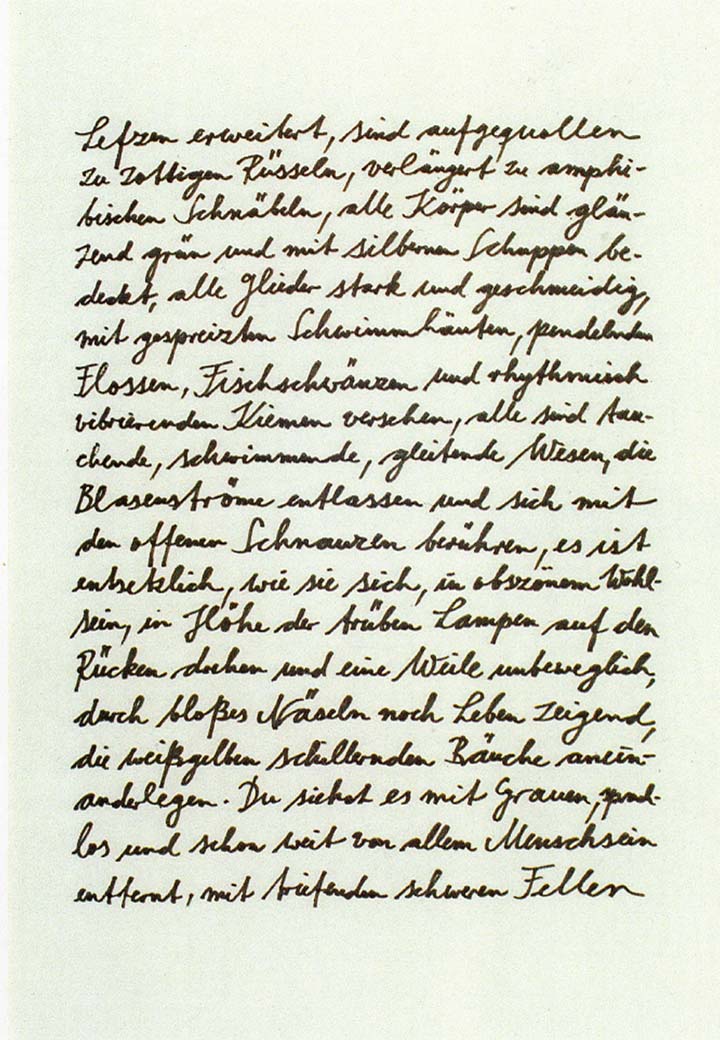 Lefzen erweitert, sind aufgequollen
zu zottigen Rüsseln, verlängert zu amphi-
bischen Schnäbeln, alle Körper sind glän-
zend grün und mit silbernen Schuppen be-
deckt, alle Glieder stark und geschmeidig,
mit gespreizten Schwimmhäuten, pendelnden
Flossen, Fischschwänzen und rhythmisch
vibrierenden Kiemen versehen, alle sind tau-
chende, schwimmende, gleitende Wesen, die
Blasenströme entlassen und sich mit
den offenen Schnauzen berühren, es ist
entsetzlich, wie sie sich, in obszönem Wohl-
sein, in Höhe der trüben Lampen auf den
Rücken drehen und eine Weile unbeweglich,
durch bloßes Näseln noch Leben zeigend,
die weißgelben schillernden Bäuche anein-
anderlegen. Du siehst es mit Grauen, sprach-
los und schon weit von allem Menschsein
entfernt, mit triefenden schweren Fellen